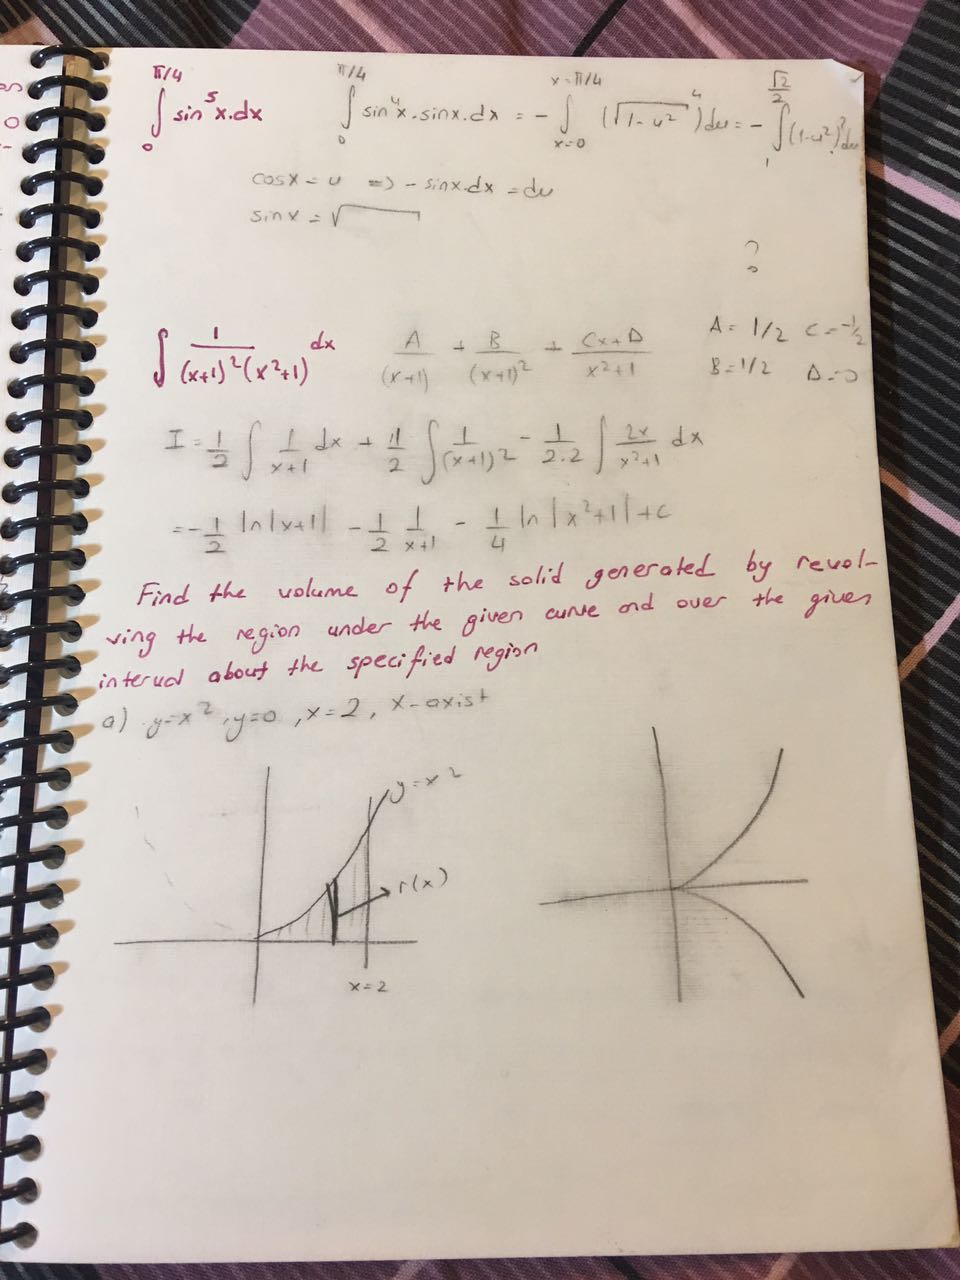 ∫₀^{π/4} sin⁵x.dx   ∫₀^{π/4} sin⁴x.sinx.dx = - ∫_{x=0}^{x=π/4} (√(1-u²))⁴ du = - ∫₁^{√2/2} (1-u²)² du
cosx = u => - sinx.dx = du
sinx = √
?
∫ 1/((x+1)²(x²+1)) dx   A/(x+1) + B/(x+1)² + (Cx+D)/(x²+1)   A = 1/2 C = -1/2
B = 1/2 D = 0
I = 1/2 ∫ 1/(x+1) dx + 1/2 ∫ 1/(x+1)² - 1/2.2 ∫ 2x/(x²+1) dx
= - 1/2 ln|x+1| - 1/2 1/(x+1) - 1/4 ln|x²+1| + c
Find the volume of the solid generated by revol-
ving the region under the given curve and over the given
interval about the specified region
a) y=x², y=0, x=2, x-axist
y=x²
r(x)
x=2